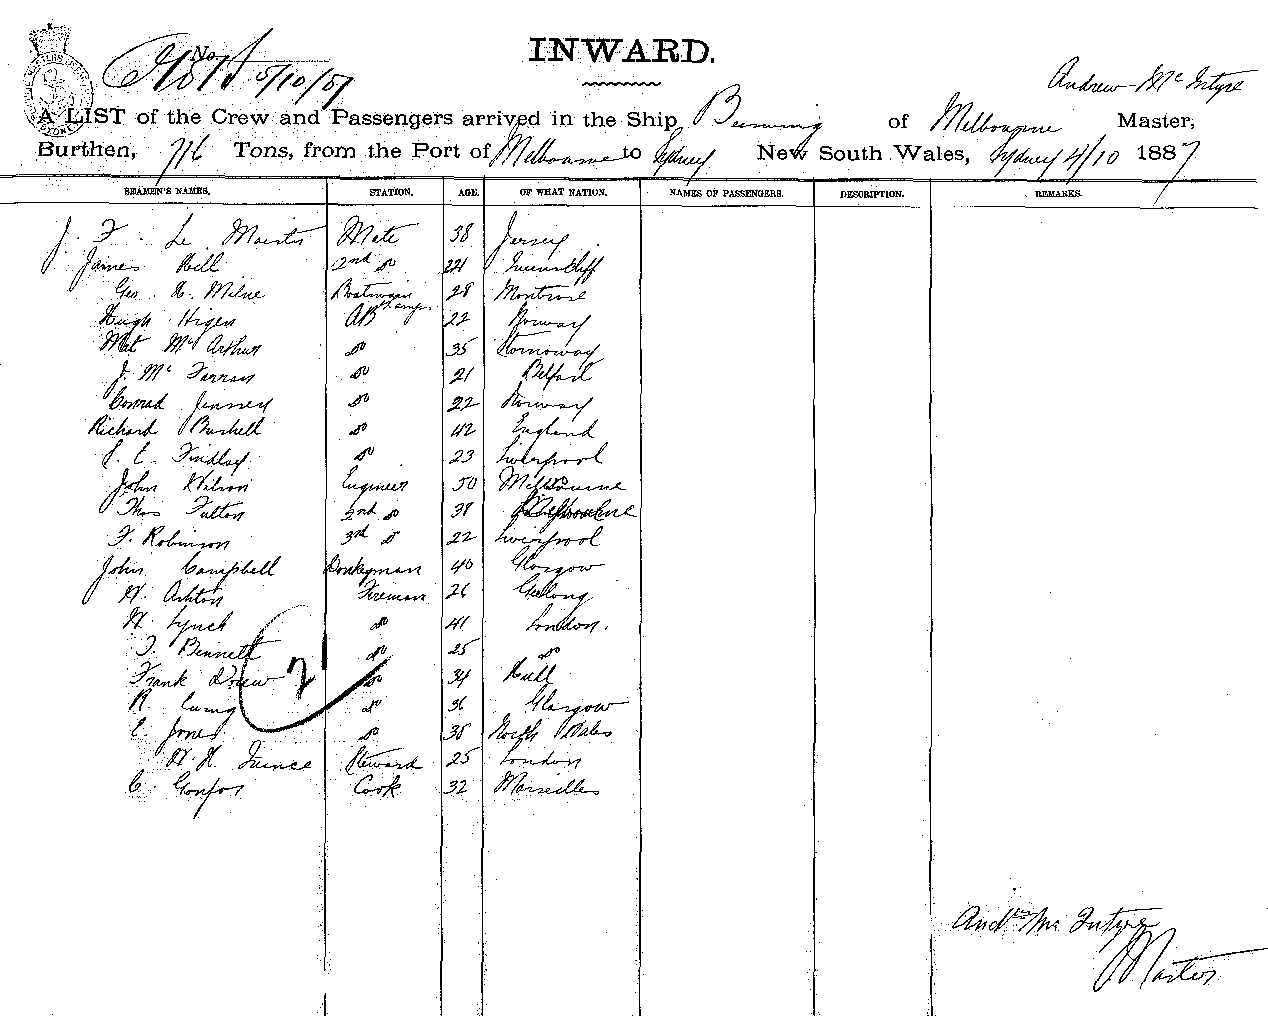 INWARD.
No 5/10/87
Andrew McIntyre
A LIST of the Crew and Passengers arrived in the Ship Burrumg of Melbourne Master,
Burthen, 716 Tons, from the Port of Melbourne to Sydney New South Wales, Sydney 4/10 1887
SEAMEN'S NAMES. STATION. AGE. OF WHAT NATION. NAMES OF PASSENGERS. DESCRIPTION. REMARKS.
J. F. Le Maistr Mate 38 Jersey
James Hill 2nd do Queenscliff
Geo. H. Milne Boatswain 28 Montrose
Hugh Higen AB 22 Norway
Mat McArthur do 35 Stornoway
J. McFarran do 21 Belfast
Conrad Jensen do 22 Norway
Richard Bushell do 42 England
J. E. Findlay do 23 Liverpool
John Wilson Engineer 50 Melbourne
Thos Fulton 2nd do 38 Melbourne
F. Robinson 3rd do 22 Liverpool
John Campbell Donkeyman 40 Glasgow
H. Ashton Fireman 26 Geelong
H. Lynch do 41 London.
T. Bennett do 25 do
Frank Drew do 34 Hull
R. do 36 Glasgow
E. Jones do 38 North Wales
W. H. Steward 25 London
C. Cook 32 Marseilles
2
Andrew McIntyre
Master